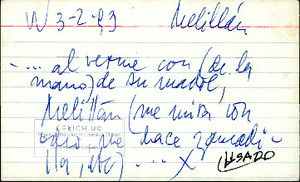 W 3-2-83 Melillán
- ... al verme con (de la
mano) de su madre,
Melillán (me mira con
odio, me hace zancadi-
lla, etc) ... X (USADO